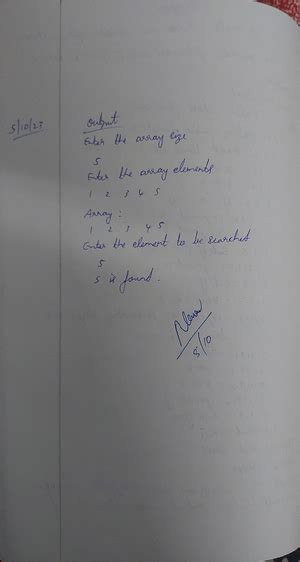 5/10/23
Output
Enter the array size
5
Enter the array elements
1 2 3 4 5
Array :
1 2 3 4 5
Enter the element to be searched
5
5 is found.
5/10